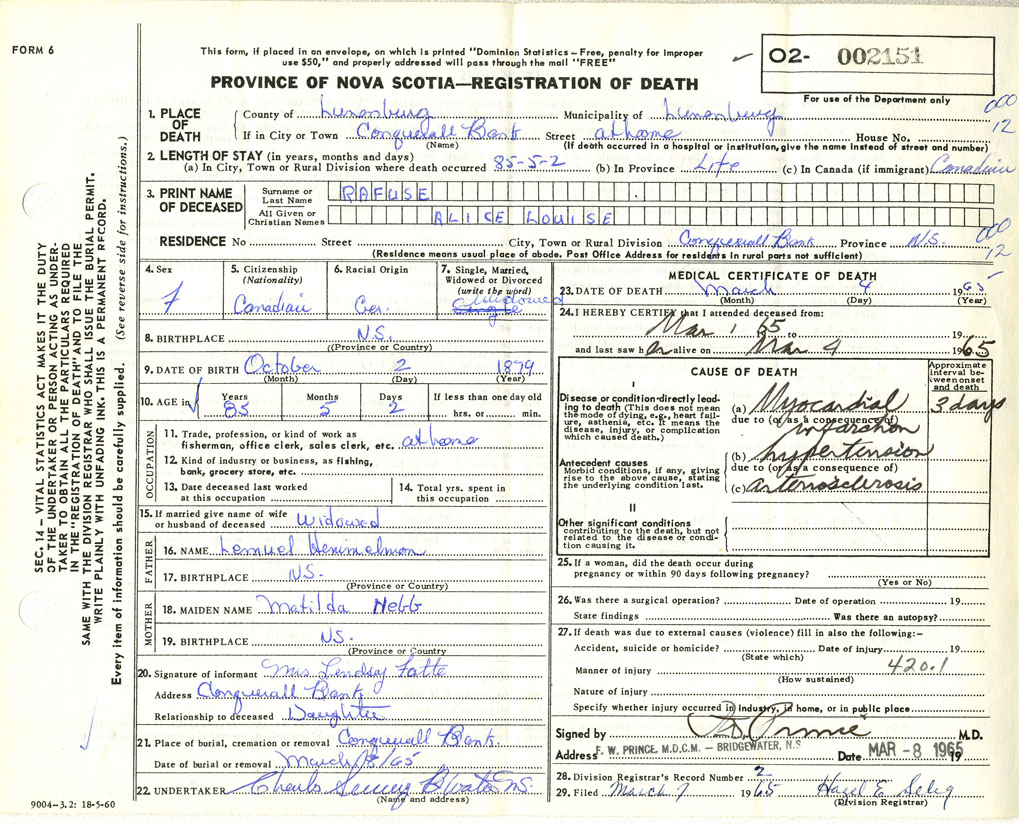 FORM 6
This form, if placed in an envelope, on which is printed "Dominion Statistics – Free, penalty for improper
use $50," and properly addressed will pass through the mail "FREE"
PROVINCE OF NOVA SCOTIA—REGISTRATION OF DEATH
O2- 002151
For use of the Department only
000
12
1. PLACE OF DEATH
County of Lunenburg Municipality of Lunenburg
If in City or Town Conquerall Bank Street at home House No.
(Name) (If death occurred in a hospital or institution, give the name instead of street and number)
2. LENGTH OF STAY (in years, months and days)
(a) In City, Town or Rural Division where death occurred 85-5-2 (b) In Province Life (c) In Canada (if immigrant) Canadian
3. PRINT NAME OF DECEASED
Surname or Last Name RAFUSE
All Given or Christian Names ALICE LOUISE
RESIDENCE No Street City, Town or Rural Division Conquerall Bank Province N.S.
000
12
(Residence means usual place of abode. Post Office Address for residents in rural parts not sufficient)
4. Sex
F
5. Citizenship
(Nationality)
Canadian
6. Racial Origin
Ger.
7. Single, Married,
Widowed or Divorced
(write the word)
Widowed
Single
8. BIRTHPLACE N.S.
((Province or Country)
9. DATE OF BIRTH October 2 1879
(Month) (Day) (Year)
10. AGE in
Years Months Days If less than one day old
85 5 2 hrs. or min.
OCCUPATION
11. Trade, profession, or kind of work as
fisherman, office clerk, sales clerk, etc. at home
12. Kind of industry or business, as fishing,
bank, grocery store, etc.
13. Date deceased last worked
at this occupation
14. Total yrs. spent in
this occupation
15. If married give name of wife
or husband of deceased Widowed
FATHER
16. NAME Lemuel Himmelman
17. BIRTHPLACE N.S.
(Province or Country)
MOTHER
18. MAIDEN NAME Matilda Hebb
19. BIRTHPLACE N.S.
(Province or Country
20. Signature of informant Mrs Lendsay
Address Conquerall Bank
Relationship to deceased Daughter
21. Place of burial, cremation or removal Conquerall Bank.
Date of burial or removal March/8/65
22. UNDERTAKER Charles B Water N.S.
(Name and address)
9004—3.2: 18-5-60
MEDICAL CERTIFICATE OF DEATH
23. DATE OF DEATH March 4 1965
(Month) (Day) (Year)
24. I HEREBY CERTIFY that I attended deceased from:
Mar 1 65 to 19
and last saw her alive on Mar 4 1965
CAUSE OF DEATH
Approximate
interval be-
tween onset
and death
I
Disease or condition directly lead-
ing to death (This does not mean
the mode of dying, e.g., heart fail-
ure, asthenia, etc. It means the
disease, injury, or complication
which caused death.)
(a) Myocardial 3 days
due to (or as a consequence of)
infarction
Antecedent causes
Morbid conditions, if any, giving
rise to the above cause, stating
the underlying condition last.
(b) hypertension
due to (or as a consequence of)
(c) arteriosclerosis
II
Other significant conditions
contributing to the death, but not
related to the disease or condi-
tion causing it.
25. If a woman, did the death occur during
pregnancy or within 90 days following pregnancy?
(Yes or No)
26. Was there a surgical operation? Date of operation 19
State findings Was there an autopsy?
27. If death was due to external causes (violence) fill in also the following:–
Accident, suicide or homicide? Date of injury 19
(State which)
Manner of injury 420.1
(How sustained)
Nature of injury
Specify whether injury occurred in industry, in home, or in public place
Signed by F W Prince M.D.
Address F. W. PRINCE, M.D.C.M. – BRIDGEWATER, N.S Date MAR - 8 1965 19
28. Division Registrar's Record Number 2
29. Filed March 7 1965 Hazel E Selig
(Division Registrar)
SEC. 14 – VITAL STATISTICS ACT MAKES IT THE DUTY
OF THE UNDERTAKER OR PERSON ACTING AS UNDER-
TAKER TO OBTAIN ALL THE PARTICULARS REQUIRED
IN THE "REGISTRATION OF DEATH" AND TO FILE THE
SAME WITH THE DIVISION REGISTRAR WHO SHALL ISSUE THE BURIAL PERMIT.
WRITE PLAINLY WITH UNFADING INK. THIS IS A PERMANENT RECORD.
Every item of information should be carefully supplied. (See reverse side for instructions.)